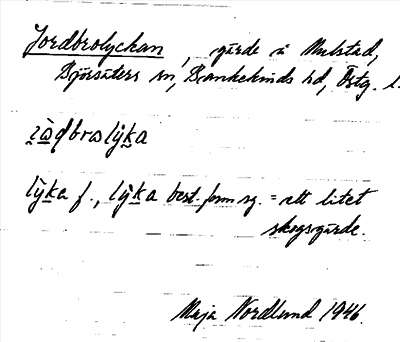 Jordbrolyckan, gärde å Mulstad,
Björsäters sn, Bankekinds hd, Östg. l.
lyka f., lyka best. form sg. = ett litet
skogsgärde.
Maja Nordlund 1946.